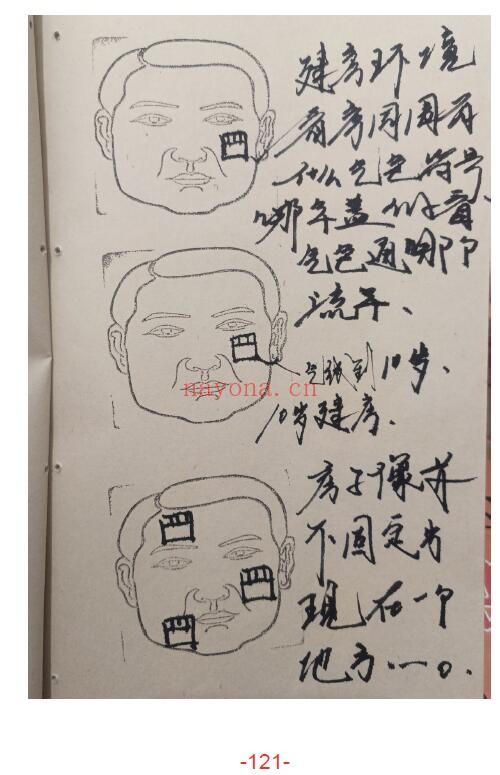 建房环境
看房周围有
什么气色符号
哪年盖的看
气色通哪个
流年、
气线到10岁、
10岁建房、
nayona.cn
房子像并
不固定出
现在一个
地方
-121-